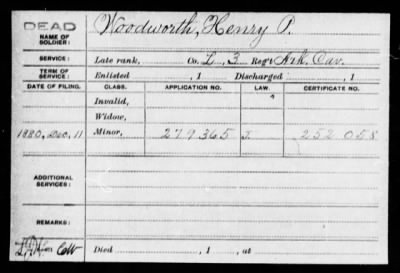 DEAD Woodworth, Henry P.
NAME OF SOLDIER:
SERVICE: Late rank, Co. L, 3 Reg't Ark. Cav.
TERM OF SERVICE: Enlisted , 1 Discharged , 1
DATE OF FILING. CLASS. APPLICATION NO. LAW. CERTIFICATE NO.
Invalid,
Widow,
1880, Dec. 11 Minor, 279365 J. 252058
ADDITIONAL SERVICES:
REMARKS:
Died , 1 , at